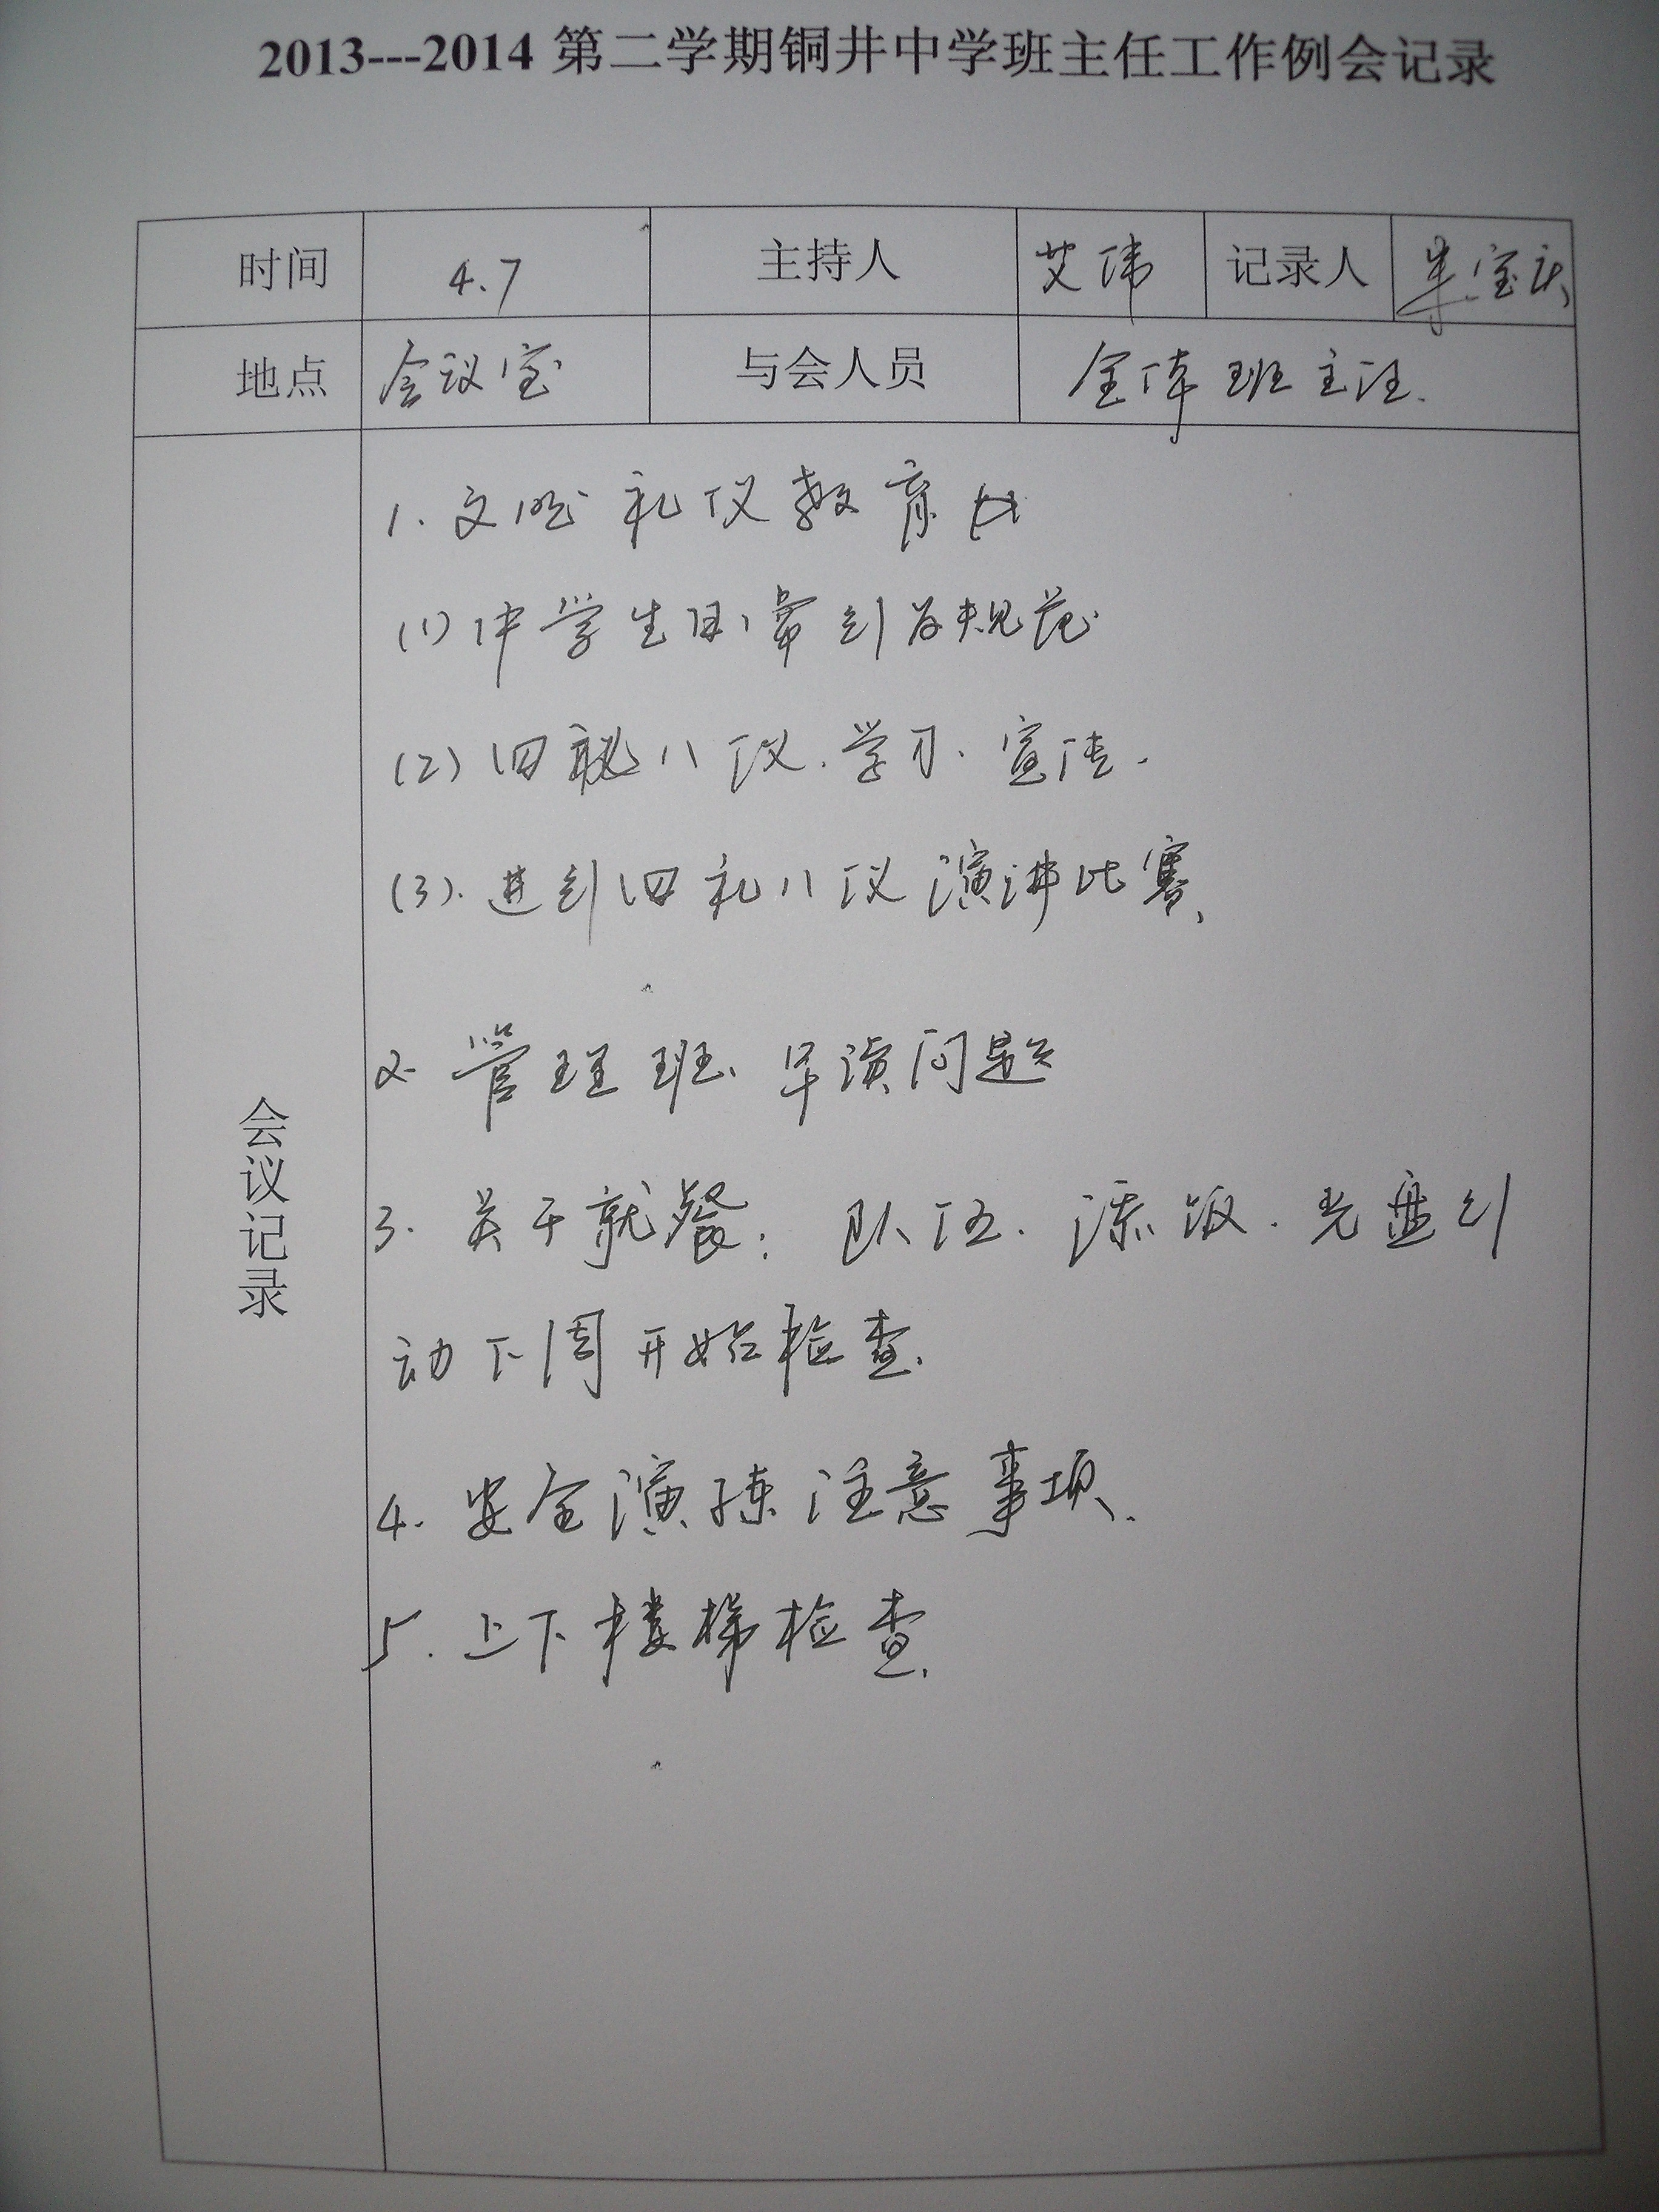 2013---2014 第二学期铜井中学班主任工作例会记录
时间 4.7 主持人 艾伟 记录人 宝庆
地点 会议室 与会人员 全体班主任.
会议记录
1. 文明礼仪教育
(1) 中学生日常行为规范
(2) 四礼八仪.学习.宣传.
(3). 进行四礼八仪演讲比赛.
2. 管理班、早读问题
3. 关于就餐: 队伍. 添饭. 光盘行
动下周开始检查.
4. 安全演练注意事项.
5. 上下楼梯检查.